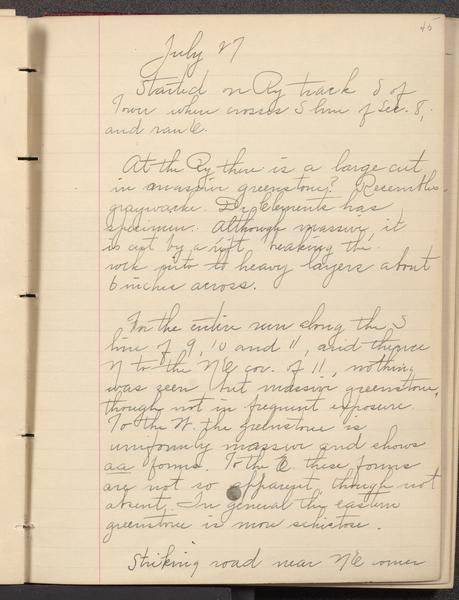 45
July 27
Started on Ry track S of
Tower where crosses S line of Sec. 8,
and ran E.
At the Ry there is a large cut
in massive greenstone? Resembles
graywacke. Dr Clements has
specimen. Although massive, it
is cut by a rift, breaking the
rock into heavy layers about
6 inches across.
For the entire run along the S
line of 9, 10 and 11, and thence
N to the NE cor. of 11, nothing
was seen but massive greenstone,
though not in frequent exposure.
To the W. the greenstone is
uniformly massive and shows
aa forms. To the E. these forms
are not so apparent, though not
absent. In general the eastern
greenstone is more schistose.
Striking road near NE corner